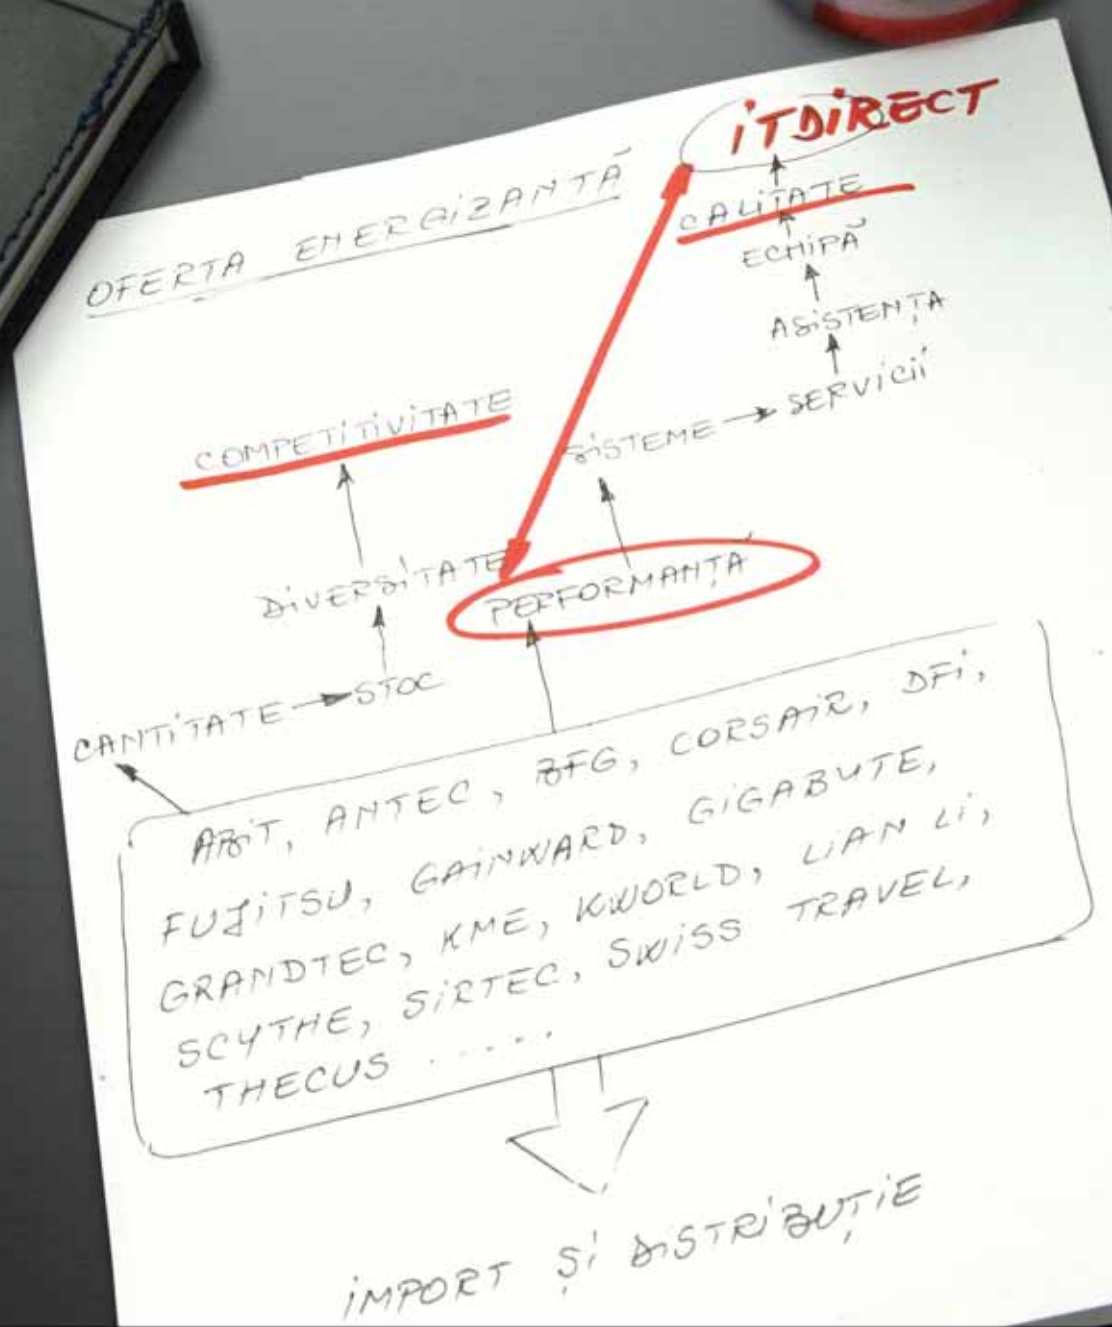 iTDiRECT
OFERTA ENERGiZANTĂ
CALiTATE
ECHiPĂ
ASiSTENȚA
SiSTEME → SERViCii
COMPETiTiViTATE
DiVERSiTATE
PERFORMANȚĂ
CANTiTATE → STOC
ABiT, ANTEC, BFG, CORSAiR, DFi,
FUJiTSU, GAiNWARD, GiGABUTE,
GRANDTEC, KME, KWORLD, LiAN Li,
SCYTHE, SiRTEC, SWiSS TRAVEL,
THECUS .....
iMPORT Și DiSTRiBUȚiE